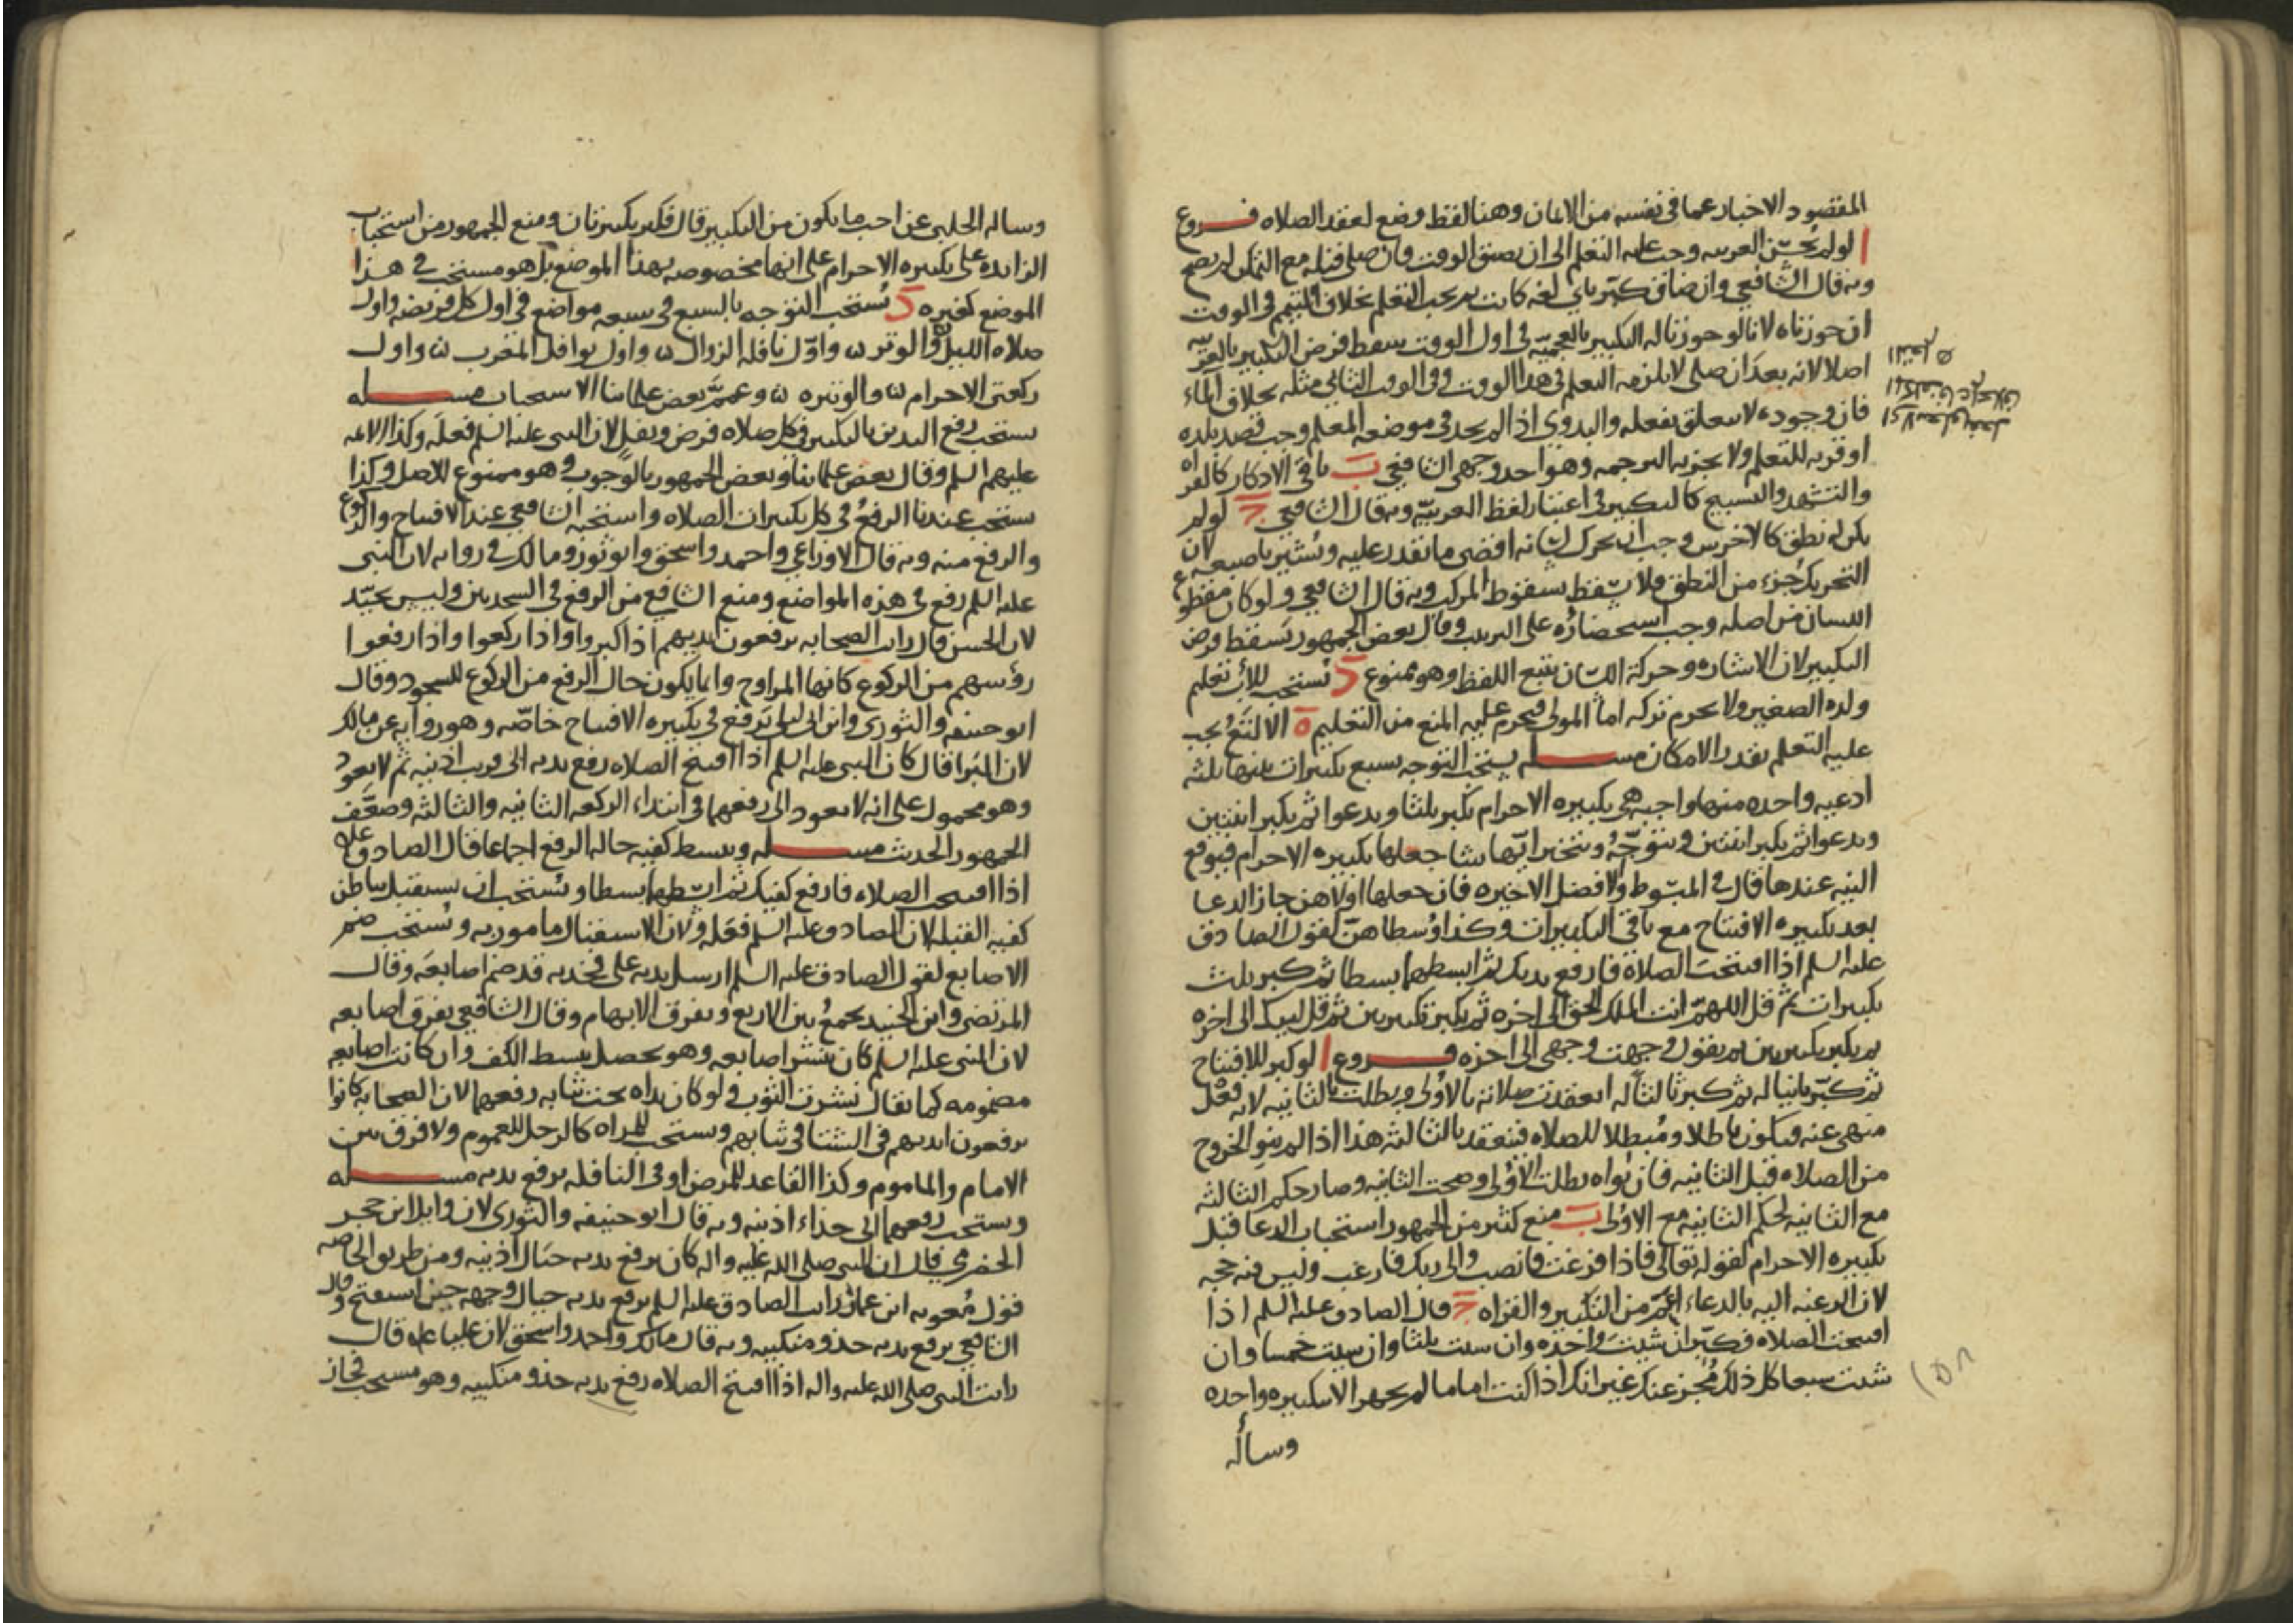 المقصود الاخبار عما في نفسه من الايمان وهنا لفظ وضع لعقد الصلاه فروع
ا لو لم يحسن العربيه وجب عليه التعلم الى ان يضيق الوقت فان صلى قبله مع التمكن لم يصح
وبه قال الشافعي وان ضاق كبر باي لغه كانت ثم يجب التعلم بخلاف المتيمم في الوقت
ان جوزناه لانا لو جوزنا له التكبير بالعجميه في اول الوقت سقط فرض التكبير بالعربيه
اصلا لانه بعد ان صلى لا يلزمه التعلم في هذا الوقت وفي الوقت الثاني مثله بخلاف الماء
فان وجوده لا يتعلق بفعله والبدوي اذا لم يجد في موضعه المعلم وجب قصد بلده
او قريه للتعلم ولا يجزيه الترجمه وهو احد وجهي الشافعي ب باقي الاذكار كالقراه
والتشهد والتسبيح كالتكبير في اعتبار لفظ العربيه وبه قال الشافعي ج لو لم
يكن له نطق كالاخرس وجب ان يحرك لسانه اقصى ما يقدر عليه ويشير باصبعه لان
التحريك جزء من النطق فلا يسقط بسقوط المركب وبه قال الشافعي ولو كان مقطوع
اللسان من اصله وجب استحضاره على الترتيب وقال بعض الجمهور يسقط فرض
التكبير لان الاشاره وحركة اللسان يتبع اللفظ وهو ممنوع د يستحب للاب تعليم
ولده الصغير ولا يحرم تركه اما المولى فيحرم عليه المنع من التعليم ه الالثغ يجب
عليه التعلم بقدر الامكان مسله يستحب التوجه بسبع تكبيرات بينها ثلثه
ادعيه واحده منها واجبه هي تكبيره الاحرام يكبر ثلثا ويدعوا ثم يكبر اثنتين
ويدعوا ثم يكبر اثنتين ويتوجه ويتخير ايها شا جعلها تكبيره الاحرام فيوقع
النيه عندها قال في المبسوط والافضل الاخيره فان جعلها اولاهن جاز الدعا
بعد تكبيره الافتتاح مع باقي التكبيرات وكذا وسطاهن لقول الصادق
عليه السلم اذا افتتحت الصلاة فارفع يديك ثم ابسطهما بسطا ثم كبر ثلث
تكبيرات ثم قل اللهم انت الملك الحق الى اخره ثم يكبر تكبيرتين ثم قل لبيك الى اخره
ثم يكبر تكبيرتين ثم يقول وجهت وجهي الى اخره فروع ا لو كبر للافتتاح
ثم كبر ثانيا له ثم كبر ثالثا له انعقدت صلاته بالاولى وبطلت بالثانيه لانه فعل
منهي عنه فيكون باطلا ومبطلا للصلاه فينعقد بالثالثه هذا اذا لم ينو الخروج
من الصلاه قبل الثانيه فان نواه بطلت الاولى وصحت الثانيه وصار حكم الثالثه
مع الثانيه لحكم الثانيه مع الاولى ب منع كثير من الجمهور استحباب الدعا قبل
تكبيره الاحرام لقوله تعالى فاذا فرغت فانصب والى ربك فارغب وليس فيه حجه
لان الرغبه اليه بالدعاء اعم من التكبير والقراه ج قال الصادق عليه السلم اذا
افتتحت الصلاه فكبر ان شيت واحده وان شيت ثلثا وان شيت خمسا وان
شيت سبعا كل ذلك مجز عنك غير انك اذا كنت اماما لم تجهر الا بتكبيره واحده
وساله
وساله الحلبي عن اخف ما يكون من التكبير قال فكبر تكبيرتان ومنع الجمهور من استحباب
الزايده على تكبيره الاحرام على انها مخصوصه بهذا الموضع بل هو مستحب في هذا
الموضع كغيره د يستحب التوجه بالسبع في سبعه مواضع في اول كل فريضه واول
صلاه الليل والوتر واول نافله الزوال واول نوافل المغرب واول
ركعتي الاحرام والوتيره وعمم بعض علمائنا الاستحباب مسله
يستحب رفع اليدين بالتكبير في كل صلاه فرض ونفل لان النبي عليه السلم فعله وكذا الائمه
عليهم السلم وقال بعض علمائنا وبعض الجمهور بالوجوب وهو ممنوع للاصل وكذا
يستحب عندنا الرفع في كل تكبيرات الصلاه واستحبه الشافعي عند الافتتاح والركوع
والرفع منه وبه قال الاوزاعي واحمد واسحق وابو ثور ومالك في روايه لان النبي
عليه السلم رفع في هذه المواضع ومنع الشافعي من الرفع في السجدتين وليس بجيد
لان الحسن قال رايت الصحابه يرفعون ايديهم اذا كبروا واذا ركعوا واذا رفعوا
رؤسهم من الركوع كانها المراوح وانما يكون حال الرفع من الركوع للسجود وقال
ابو حنيفه والثوري وابن ابي ليلى يرفع في تكبيره الافتتاح خاصه وهو روايه عن مالك
لان البرا قال كان النبي عليه السلم اذا افتتح الصلاه رفع يديه الى قريب اذنيه ثم لا يعود
وهو محمول على انه لا يعود الى رفعهما في ابتداء الركعه الثانيه والثالثه وضعف
الجمهور الحديث مسله ويبسط كفيه حاله الرفع اجماعا قال الصادق عليه
اذا افتتحت الصلاه فارفع كفيك ثم ابسطهما بسطا ويستحب ان يستقبل بباطن
كفيه القبله لان الصادق عليه السلم فعله ولان الاستقبال مامور به ويستحب ضم
الاصابع لقول الصادق عليه السلم ارسل يديه على فخذيه قد ضم اصابعه وقال
المرتضى وابن الجنيد يجمع بين الاربع ويفرق الابهام وقال الشافعي يفرق اصابعه
لان النبي عليه السلم كان ينشر اصابعه وهو يحصل ببسط الكف وان كانت اصابعه
مضمومه كما يقال نشرت الثوب ولو كان يداه تحت ثيابه رفعهما لان الصحابه كانوا
يرفعون ايديهم في الشتا في ثيابهم ويستحب للمراه كالرجل للعموم ولا فرق بين
الامام والماموم وكذا القاعد للمرض او في النافله يرفع يديه مسله
ويستحب رفعهما الى حذاء اذنيه وبه قال ابو حنيفه والثوري لان وايل بن حجر
الحضرمي قال ان النبي صلى الله عليه واله كان يرفع يديه حيال اذنيه ومن طريق الخاصه
قول معويه ابن عمار رايت الصادق عليه السلم يرفع يديه حيال وجهه حين استفتح وقال
الشافعي يرفع يديه حذو منكبيه وبه قال مالك واحمد واسحق لان عليا عليه قال
رايت النبي صلى الله عليه واله اذا افتتح الصلاه رفع يديه حذو منكبيه وهو مستحب فجاز